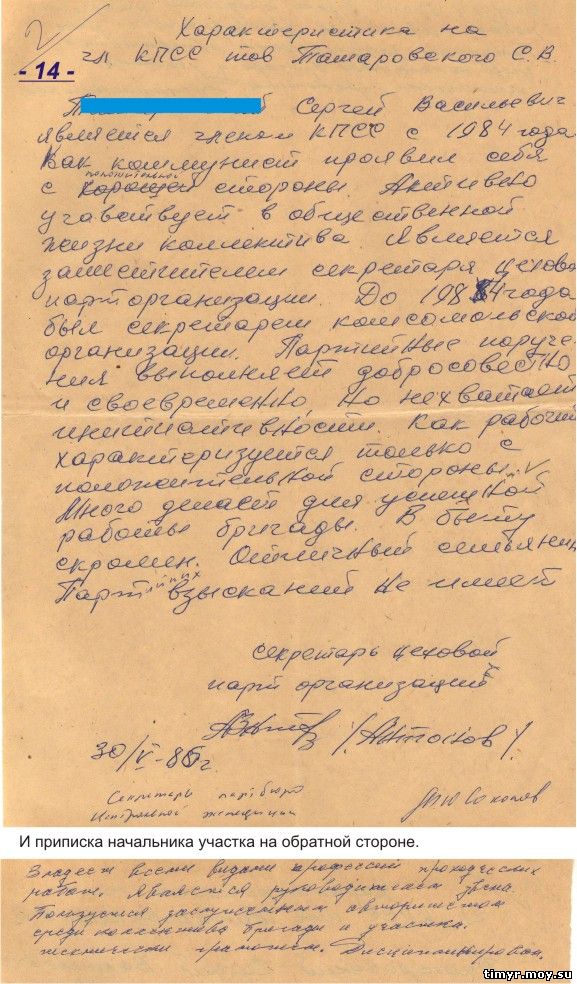 2
- 14 -
Характеристика на
чл. КПСС тов Татаровского С.В.
Сергей Васильевич
является членом КПСС с 1984 года
Как коммунист проявил себя
положительной
с хорошей стороны. Активно
учавствует в общественной
жизни коллектива. Является
заместителем секретаря цехово
парторганизации. До 1984 года
был секретарем комсомольской
организации. Партийные поруче-
ния выполняет добросовестно
и своевременно но нехватает
инициативности. Как рабочий
характеризуется только с
положительной стороны.
Много делает для успешной
работы бригады. В быту
скромен. Отличный семьянин
Партийных взысканий не имеет
секретарь цеховой
парт организации
/Антонов/.
30/V-86г.
Секретарь партбюро
экспедиции
И приписка начальника участка на обратной стороне.
Владеет всеми видами профессий проходческих
работ. Является руководителем звена.
Пользуется заслуженным авторитетом
среди коллектива бригады и участка.
технически грамотен. Дисциплинирован.
timyr.moy.su